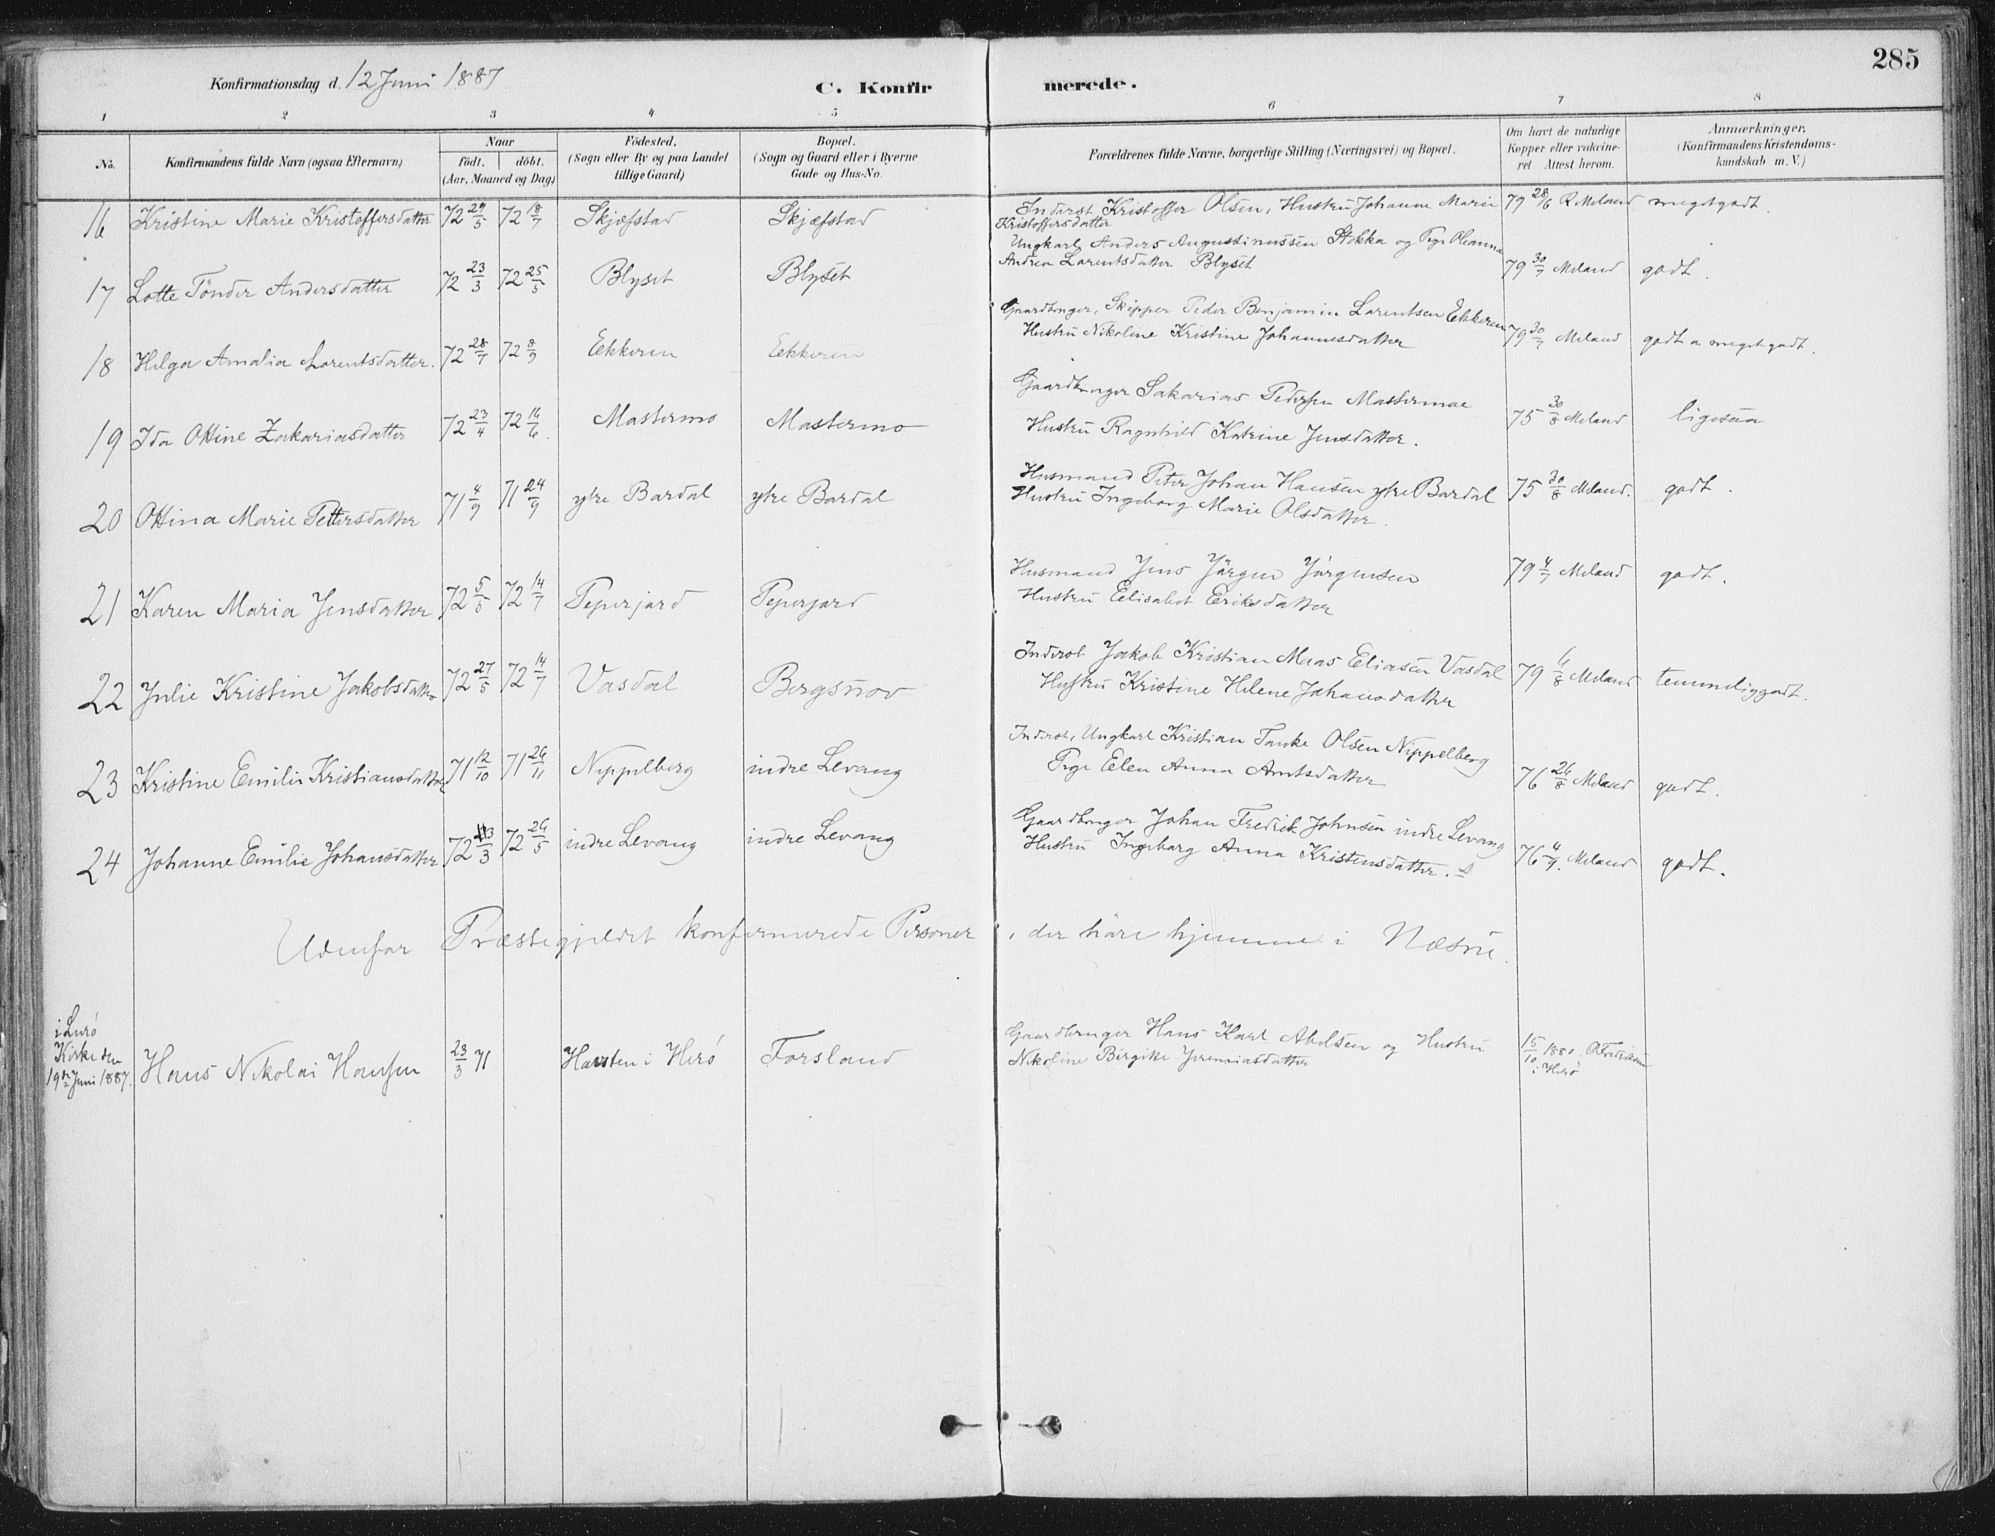 285
Konfirmationsdag d. 12 Juni 1887
C. Konfir merede.
1 2 3 4 5 6 7 8
No. Konfirmandens fulde Navn (ogsaa Efternavn)
Naar
født. døbt.
(Aar, Maaned og Dag)
Fødested.
(Sogn eller By og paa Landet
tillige Gaard)
Bopæl.
(Sogn og Gaard eller i Byerne
Gade og Hus-No.
Forældrenes fulde Navne, borgerlige Stilling (Næringsvei) og Bopæl.
Om havt de naturlige
Kopper eller vaccine-
ret Attest herom.
Anmærkninger.
(Konfirmandens Kristendoms-
kundskab m. V.)
16 Kristine Marie Kristoffersdatter 72 29/5 72 18/7 Skjæfstad Skjæfstad Inderst Kristoffer Olsen, Hustru Johanne Marie 79 28/6 R Meland meget godt
Kristoffersdatter
17 Lotte Tönder Andersdatter 72 23/3 72 25/5 Blyset Blyset Ungkarl Anders Augustinussen Stokka og Pige Oleanna
Andrea Lorentsdatter Blyset 79 30/7 Meland godt.
18 Helga Amalia Lorentsdatter. 72 28/7 72 8/9 Eekkeren Eekkeren Gaardbruger, Skipper Peder Benjamin Lorentsen Ekkeren
Hustru Nikoline Kristine Johannesdatter 79 30/7 Meland godt a meget godt.
19 Ida Ottine Zakariasdatter 72 23/4 72 16/6. Mastermo Mastermo Gaardbruger Sakarias Pedersen Mastermoe
Hustru Ragnhild Katrine Jensdatter. 75 30/8 Meland ligesaa
20 Ottina Marie Pettersdatter 71 4/9 71 24/9 ytre Bardal ytre Bardal Husmand Peter Johan Hansen ytre Bardal
Hustru Ingeborg Marie Olsdatter. 75 30/8 Meland. godt.
21 Karen Maria Jensdatter 72 5/5 72 14/7 Peperjord Peperjord Husmand Jens Jörgen Jörgensen
Hustru Elisabet Eriksdatter 79 4/7 Meland godt.
22 Julie Kristine Jakobsdatter 72 27/5 72 14/7 Vasdal Bergsnov Inderst Jakob Kristian Maas Eliasen Vasdal
Hustru Kristine Helene Johansdatter 79 6/8 Meland temmelig godt.
23 Kristine Emilie Kristiansdatter 71 12/10 71 26/11 Nippelberg indre Levang Inderst, Ungkarl Kristian Tanke Olsen Nippelberg
Pige Elen Anna Arntsdatter 76 26/8 Meland godt.
24 Johanne Emilie Johansdatter 72 13/3 72 26/5 indre Levang indre Levang Gaardbruger Johan Fredrik Johnsen indre Levang
Hustru Ingeborg Anna Kristensdatter. 76 4/9. Meland godt.
Udenfor Præstegjeldet konfirmerede Personer, der höre hjemme i Næsne.
i Lurö
Kirke den
19de Juni 1887. Hans Nikolai Hansen 23/3 71 Hausten i Herö Forsland Gaardbruger Hans Karl Abelsen og Hustru
Nikoline Birgitte Jeremiasdatter 15/10 1880
i Herö